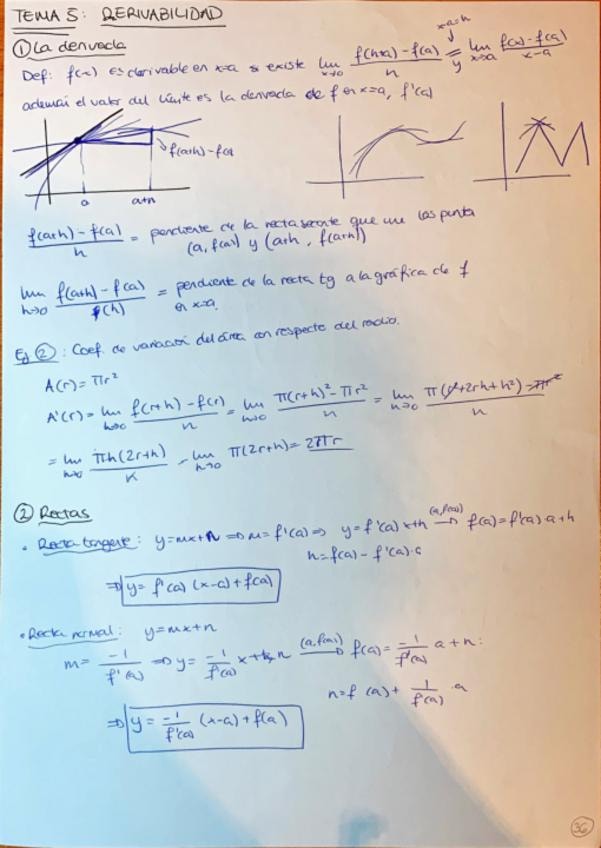 TEMA 5: DERIVABILIDAD
① La derivada
x=a+h
Def: f(x) es derivable en x=a si existe lim x→0 f(h+a)-f(a)/h = lim x→a f(x)-f(a)/x-a
además el valor del límite es la derivada de f en x=a, f'(a)
f(a+h)-f(a
a a+h
f(a+h)-f(a)/h = pendiente de la recta secante que une los puntos
(a, f(a)) y (a+h, f(a+h))
lim h→0 f(a+h)-f(a)/(h) = pendiente de la recta tg a la gráfica de f
en x=a.
Ej ②: Coef. de variación del área con respecto del radio.
A(r)=πr²
A'(r)= lim h→0 f(r+h)-f(r)/h = lim h→0 π(r+h)²-πr²/h = lim h→0 π(r²+2rh+h²)-πr²/h
= lim h→0 πh(2r+h)/h = lim h→0 π(2r+h)= 2πr
② Rectas
• Recta tangente: y=mx+n ⇒ m=f'(a) ⇒ y=f'(a)x+h (a,f(a)) → f(a)=f'(a)·a+h
h=f(a)-f'(a)·a
⇒ y= f'(a) (x-a)+f(a)
• Recta normal: y=mx+n
m= -1/f'(a) ⇒ y= -1/f'(a) x+n (a,f(a)) → f(a)= -1/f'(a) a+n:
n=f (a)+ 1/f'(a) ·a
⇒ y= -1/f'(a) (x-a)+f(a)
36